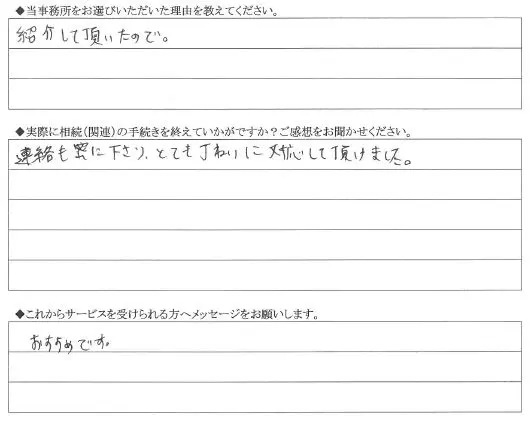 ◆当事務所をお選びいただいた理由を教えてください。
紹介して頂いたので。
◆実際に相続(関連)の手続きを終えていかがですか?ご感想をお聞かせください。
連絡も密に下さり、とても丁ねいに対応して頂けました。
◆これからサービスを受けられる方へメッセージをお願いします。
おすすめです。